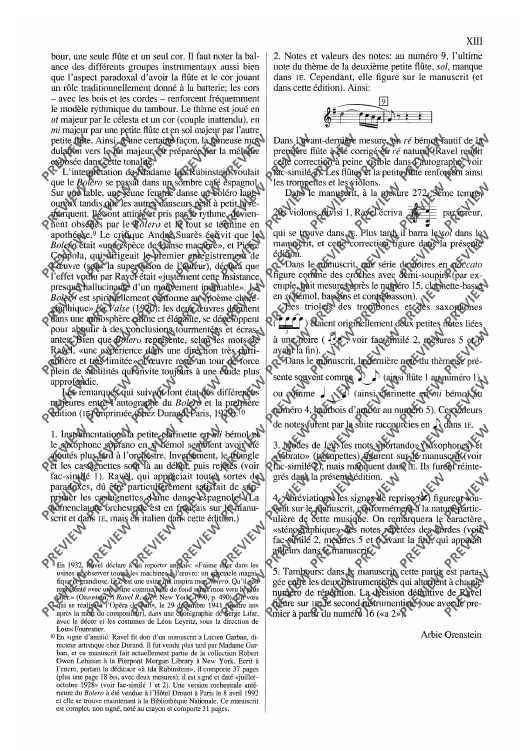 XIII
bour, une seule flûte et un seul cor. Il faut noter la bal-
ance des différents groupes instrumentaux aussi bien
que l'aspect paradoxal d'avoir la flûte et le cor jouant
un rôle traditionnellement donné à la batterie; les cors
– avec les bois et les cordes – renforcent fréquemment
le modèle rythmique du tambour. Le thème est joué en
ut majeur par le célesta et un cor (couple inattendu), en
mi majeur par une petite flûte et en sol majeur par l'autre
petite flûte. Ainsi, d'une certaine façon, la fameuse mo-
dulation vers le mi majeur est préparée par la mélodie
exposée dans cette tonalité.
L'interprétation de Madame Ida Rubinstein voulait
que le Bolero se passât dans un sombre café espagnol.
Sur une table, une jeune femme danse un boléro lang-
oureux tandis que les autres danseurs petit à petit la re-
marquent. Ils sont attirés et pris par le rythme, devien-
nent obsédés par le Bolero et le tout se termine en
apothéose.⁹ Le critique André Suarès écrivit que le
Bolero était «une espèce de danse macabre», et Piero
Coppola, qui dirigeait le premier enregistrement de
l'œuvre (sous la supervision de l'auteur), déclara que
l'effet voulu par Ravel était «justement cette insistance,
presque hallucinante d'un mouvement immuable». Le
Bolero est spirituellement conforme au «poème choré-
graphique» La Valse (1920): les deux œuvres débutent
dans une atmosphère calme et éloignée, se développent
pour aboutir à des conclusions tourmentées et écras-
antes. Bien que Bolero représente, selon les mots de
Ravel, «une expérience dans une direction très parti-
culière et très limitée», l'œuvre reste un tour de force
plein de subtilités qui invite toujours à une étude plus
approfondie.
Les remarques qui suivent font état des différences
majeures entre l'autographe du Bolero et la première
édition (1E) imprimée (chez Durand, Paris, 1929).¹⁰
1. Instrumentation: la petite clarinette en mi bémol et
le saxophone soprano en si bémol semblent avoir été
ajoutés plus tard à l'orchestre. Inversement, le triangle
et les castagnettes sont là au début, puis rejetés (voir
fac-similé 1). Ravel, qui appréciait toutes sortes de
paradoxes, dû être particulièrement satisfait de sup-
primer les castagnettes d'une danse espagnole! (La
nomenclature orchestrale est en français sur le manu-
scrit et dans 1E, mais en italien dans cette édition.)
⁹ En 1932, Ravel déclara à un reporter anglais: «J'aime aller dans les
¹⁰ En signe d'amitié, Ravel fit don d'un manuscrit à Lucien Garban, di-
recteur artistique chez Durand. Il fut vendu plus tard par Madame Gar-
ban, et ce manuscrit fait actuellement partie de la collection Robert
Owen Lehman à la Pierpont Morgan Library à New York. Ecrit à
l'encre, portant la dédicace «à Ida Rubinstein», il comporte 37 pages
(plus une page 18 bis, avec deux mesures); il est signé et daté «juillet–
octobre 1928» (voir fac-similé 1 et 2). Une version orchestrale anté-
rieure du Bolero a été vendue à l'Hôtel Drouot à Paris le 8 avril 1992
et elle se trouve maintenant à la Bibliothèque Nationale. Ce manuscrit
est complet, non signé, noté au crayon et comporte 31 pages.
2. Notes et valeurs des notes: au numéro 9, l'ultime
note du thème de la deuxième petite flûte, sol, manque
dans 1E. Cependant, elle figure sur le manuscrit (et
dans cette édition). Ainsi:
9
Dans l'avant-dernière mesure, un ré bémol fautif de la
première flûte a été corrigé en ré naturel (Ravel rendit
cette correction à peine visible dans l'autographe; voir
fac-similé 2). Les flûtes et la petite flûte renforcent ainsi
les trompettes et les violons.
Dans le manuscrit, à la mesure 272, 3ème temps,
2ds violons, divisi 1, Ravel écriva par erreur,
qui se trouve dans 1E. Plus tard, il barra le sol dans le
manuscrit, et cette correction figure dans la présente
édition.
Dans le manuscrit, une série de noires en staccato
figure comme des croches avec demi-soupirs (par ex-
emple, huit mesures après le numéro 15, clarinette-basse
en si bémol, bassons et contrebasson).
Les triolets des trombones et des saxophones
( ) étaient originellement deux petites notes liées
à une noire ( voir fac-similé 2, mesures 5 et 6
avant la fin).
Dans le manuscrit, la dernière note du thème se pré-
sente souvent comme (ainsi flûte 1 au numéro 1)
ou comme (ainsi, clarinette en mi bémol au
numéro 4, hautbois d'amour au numéro 5). Ces valeurs
de notes furent par la suite raccourcies en dans 1E.
3. Modes de jeu: les mots «portando» (saxophones) et
«vibrato» (trompettes) figurent sur le manuscrit (voir
fac-similé 2), mais manquent dans 1E. Ils furent réinté-
grés dans la présente édition.
4. Abréviations: les signes de reprise ( ) figurent sou-
vent sur le manuscrit, conformément à la nature partic-
ulière de cette musique. On remarquera le caractère
«sténographique» des notes répétées des cordes (voir
fac-similé 2, mesures 5 et 6 avant la fin), qui apparaît
ailleurs dans le manuscrit.
5. Tambours: dans le manuscrit, cette partie est parta-
gée entre les deux instrumentistes qui alternent à chaque
numéro de répétition. La décision définitive de Ravel
figure sur 1E: le second instrumentiste joue avec le pre-
mier à partir du numéro 16 («a 2»).
Arbie Orenstein